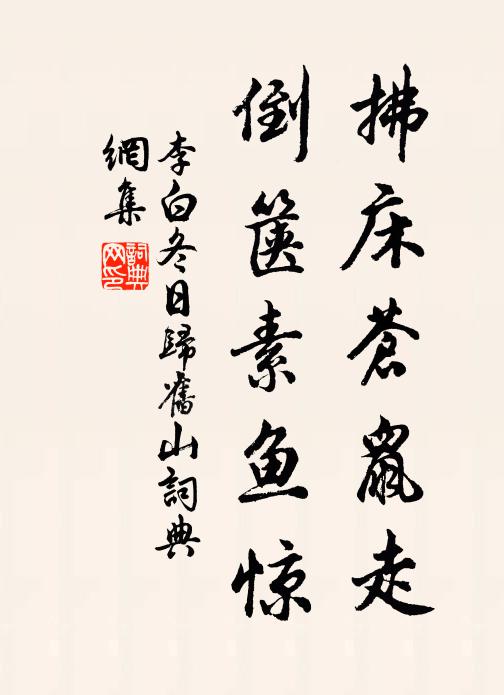 拂床苍鼠走
倒箧素鱼惊
李白冬日歸舊山詞典
網集
詞典网印